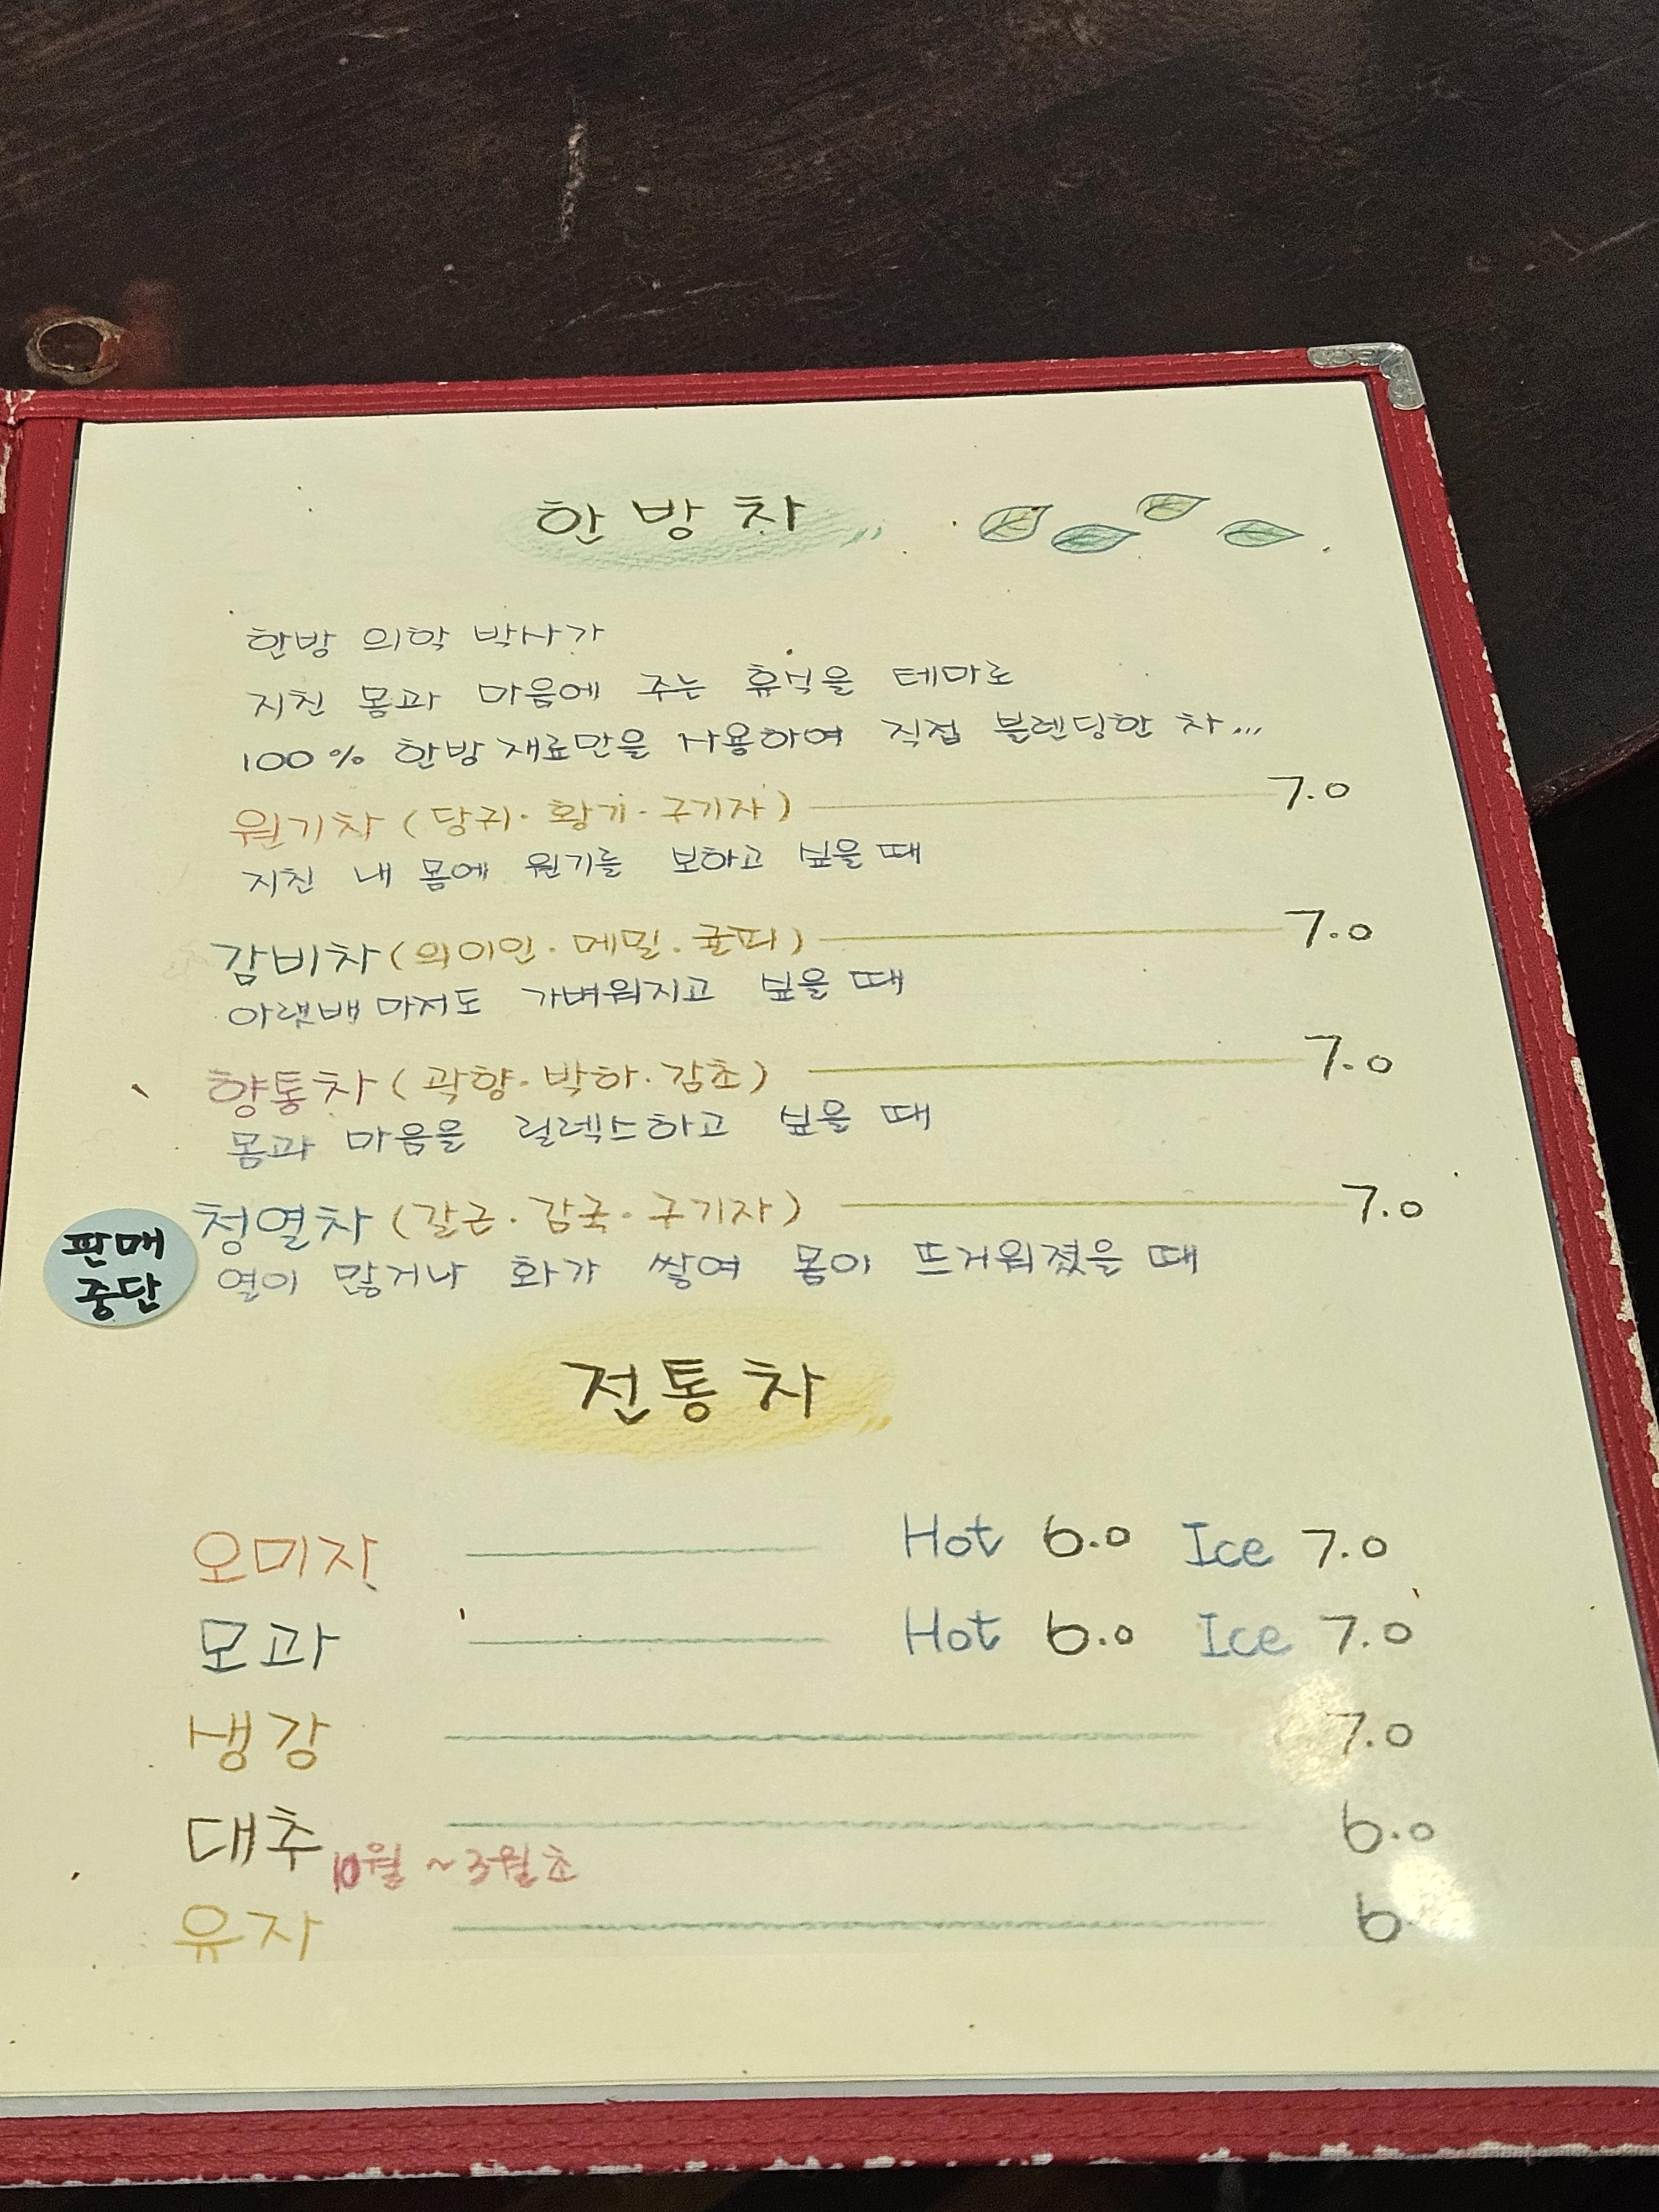 한방차
한방 의학 박사가
지친 몸과 마음에 주는 휴식을 테마로
100% 한방재료만을 사용하여 직접 블렌딩한 차...
원기차 (당귀·황기·구기자) 7.0
지친 내 몸에 원기를 보하고 싶을 때
감비차 (의이인·메밀·귤피) 7.0
아랫배 마저도 가벼워지고 싶을 때
향통차 (곽향·박하·감초) 7.0
몸과 마음을 릴렉스하고 싶을 때
판매
중단
청열차 (갈근·감국·구기자) 7.0
열이 많거나 화가 쌓여 몸이 뜨거워졌을 때
전통차
오미자 Hot 6.0 Ice 7.0
모과 Hot 6.0 Ice 7.0
생강 7.0
대추 10월~3월초 6.0
유자 6.